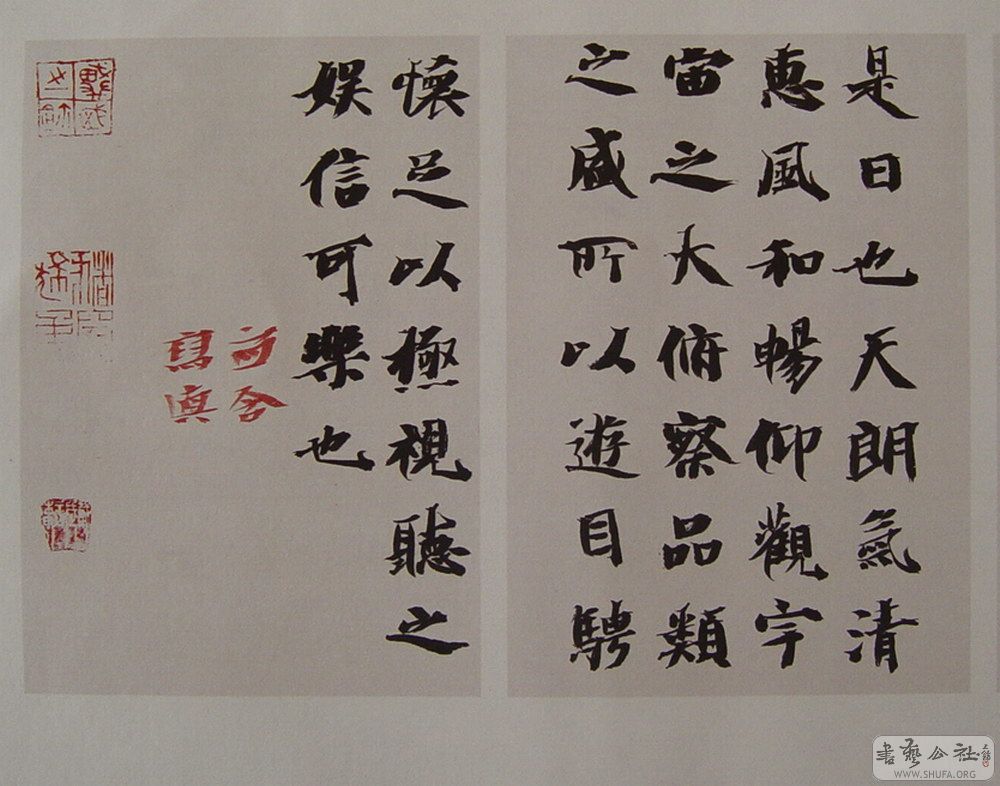 是日也天朗氣清
惠風和暢仰觀宇
宙之大俯察品類
之盛所以遊目騁
懷足以極視聽之
娛信可樂也
寫真
書藝公社
WWW.SHUFA.ORG